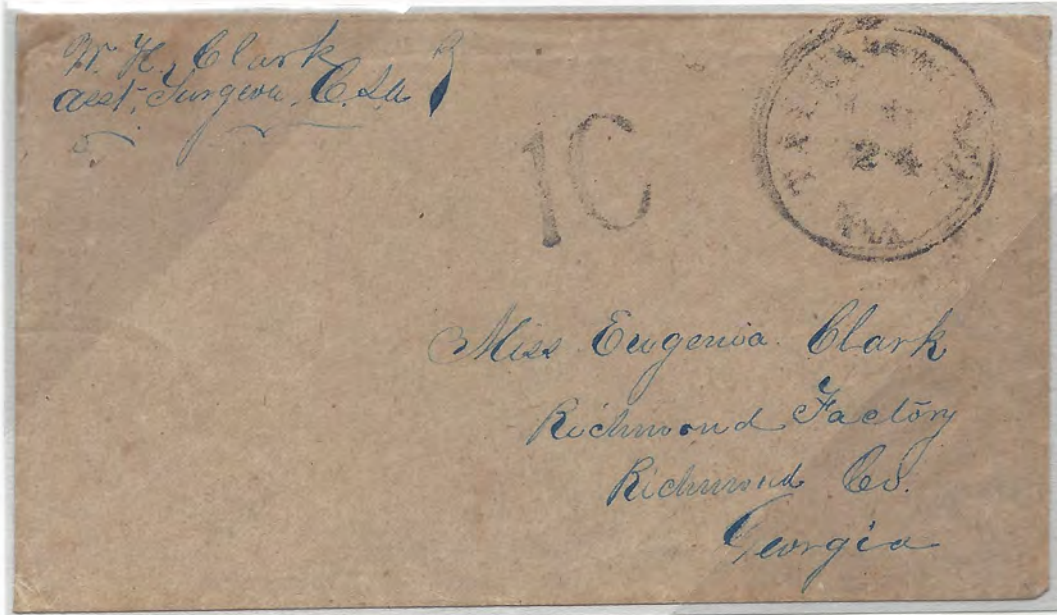 W. H. Clark
Asst. Surgeon. C.S.a
10
24
Miss Eugenia Clark
Richmond Factory
Richmond Co.
Georgia